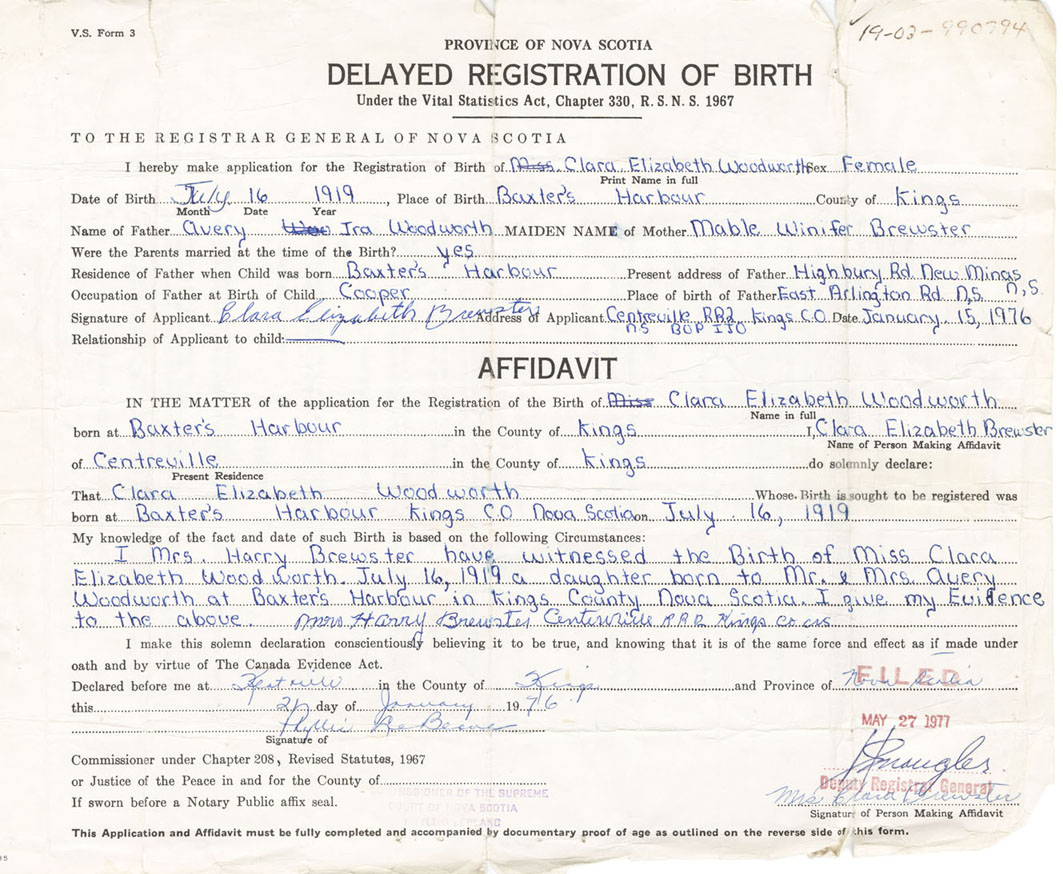 V.S. Form 3
19-03-990794
PROVINCE OF NOVA SCOTIA
DELAYED REGISTRATION OF BIRTH
Under the Vital Statistics Act, Chapter 330, R.S.N.S. 1967
TO THE REGISTRAR GENERAL OF NOVA SCOTIA
I hereby make application for the Registration of Birth of Miss. Clara Elizabeth Woodworth Sex Female
Print Name in full
Date of Birth July 16 1919, Place of Birth Baxter's Harbour County of Kings
Month Date Year
Name of Father Avery Ira Woodworth MAIDEN NAME of Mother Mable Winifer Brewster
Were the Parents married at the time of the Birth? yes
Residence of Father when Child was born Baxter's Harbour Present address of Father Highbury Rd. New Minas N,S.
Occupation of Father at Birth of Child Cooper Place of birth of Father East Arlington Rd. N.S.
Signature of Applicant Clara Elizabeth Brewster Address of Applicant Centreville RR2 Kings C.O. Date January 15, 1976
NS BOP 1J0
Relationship of Applicant to child:
AFFIDAVIT
IN THE MATTER of the application for the Registration of the Birth of Miss Clara Elizabeth Woodworth
Name in full
born at Baxter's Harbour in the County of Kings I, Clara Elizabeth Brewster
Name of Person Making Affidavit
of Centreville in the County of Kings do solemnly declare:
Present Residence
That Clara Elizabeth Woodworth Whose Birth is sought to be registered was
born at Baxter's Harbour Kings C.O Nova Scotia on July 16, 1919
My knowledge of the fact and date of such Birth is based on the following Circumstances:
I Mrs. Harry Brewster have witnessed the Birth of Miss Clara
Elizabeth Woodworth. July 16, 1919 a daughter born to Mr. & Mrs. Avery
Woodworth at Baxter's Harbour in Kings County Nova Scotia. I give my Evidence
to the above. Mrs Harry Brewster Centreville RR2 Kings Co
I make this solemn declaration conscientiously believing it to be true, and knowing that it is of the same force and effect as if made under
oath and by virtue of The Canada Evidence Act.
Declared before me at Kentville in the County of Kings and Province of Nova Scotia
FILED
this day of January 1976
MAY 27 1977
Phyllis
Signature of
Commissioner under Chapter 208, Revised Statutes, 1967
or Justice of the Peace in and for the County of
Deputy Registrar General
COMMISSIONER OF THE SUPREME
COURT OF NOVA SCOTIA
Mrs Clara Brewster
If sworn before a Notary Public affix seal.
Signature of Person Making Affidavit
This Application and Affidavit must be fully completed and accompanied by documentary proof of age as outlined on the reverse side of this form.